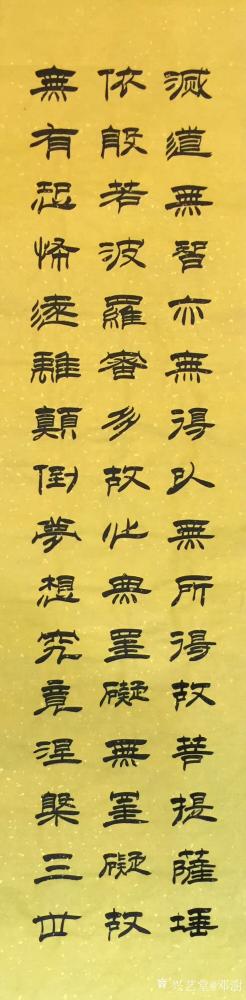 滅道無智亦無得以無所得故菩提薩埵
依般若波羅蜜多故心無罣礙無罣礙故
無有恐怖遠離顛倒夢想究竟涅槃三世
兴艺堂@邓澍